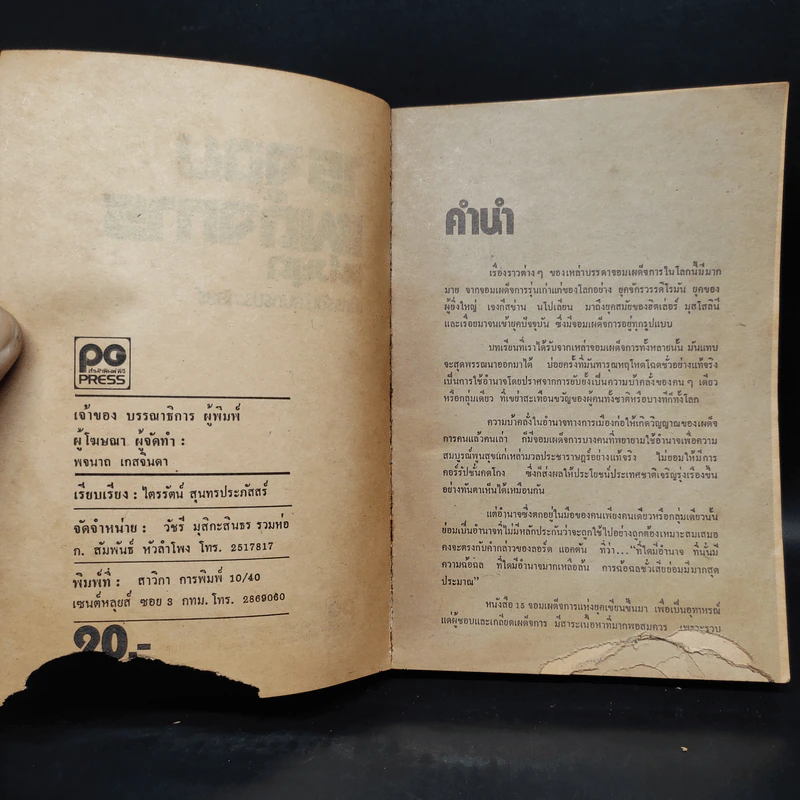 PG
สำนักพิมพ์ พีจี
PRESS
เจ้าของ บรรณาธิการ ผู้พิมพ์
ผู้โฆษณา ผู้จัดทำ :
พจนาถ เกสจินดา
เรียบเรียง : ไตรรัตน์ สุนทรประภัสสร์
จัดจำหน่าย : วัชรี มุสิกะสินธร รวมห่อ
ก. สัมพันธ์ หัวลำโพง โทร. 2517817
พิมพ์ที่ : สาวิกา การพิมพ์ 10/40
เซนต์หลุยส์ ซอย 3 กทม. โทร. 2869060
20.-
คำนำ
เรื่องราวต่างๆ ของเหล่าบรรดาจอมเผด็จการในโลกนี้มีมาก
มาย จากจอมเผด็จการรุ่นเก่าแก่ของโลกอย่าง ยุคจักรวรรดิโรมัน ยุคของ
ผู้ยิ่งใหญ่ เจงกีสข่าน นโปเลียน มาถึงยุคสมัยของฮิตเล่อร์ มุสโสลินี
และเรื่อยมาจนเข้ายุคปัจจุบัน ซึ่งมีจอมเผด็จการอยู่ทุกรูปแบบ
บทเรียนที่เราได้รับจากเหล่าจอมเผด็จการทั้งหลายนั้น มันแทบ
จะสุดพรรณนาออกมาได้ บ่อยครั้งที่มันทารุณหฤโหดโฉดชั่วอย่างแท้จริง
เป็นการใช้อำนาจโดยปราศจากการยับยั้งเป็นความบ้าคลั่งของคน ๆ เดียว
หรือกลุ่มเดียว ที่เขย่าสะเทือนขวัญของผู้คนทั้งชาติหรือบางทีก็ทั้งโลก
ความบ้าคลั่งในอำนาจทางการเมืองก่อให้เกิดวิญญาณของเผด็จ
การคนแล้วคนเล่า ก็มีจอมเผด็จการบางคนที่พยายามใช้อำนาจเพื่อความ
สมบูรณ์พูนสุขแก่เหล่ามวลประชาราษฎร์อย่างแท้จริง ไม่ยอมให้มีการ
คอร์รัปชั่นคดโกง ซึ่งก็ส่งผลให้ประโยชน์ประเทศชาติเจริญรุ่งเรืองขึ้น
อย่างทันตาเห็นได้เหมือนกัน
แต่อำนาจซึ่งตกอยู่ในมือของคนเพียงคนเดียวหรือกลุ่มเดียวนั้น
ย่อมเป็นอำนาจที่ไม่มีหลักประกันว่าจะถูกใช้ไปอย่างถูกต้องเหมาะสมเสมอ
คงจะตรงกับคำกล่าวของลอร์ด แอคตัน ที่ว่า... "ที่ใดมีอำนาจ ที่นั้นมี
ความฉ้อฉล ที่ใดมีอำนาจมากเหลือล้น การฉ้อฉลชั่วเสียย่อมมีมากสุด
ประมาณ"
หนังสือ 15 จอมเผด็จการแห่งยุคเขียนขึ้นมา เพื่อเป็นอุทาหรณ์
แด่ผู้ชอบและเกลียดเผด็จการ มีสาระเนื้อหาที่มากพอสมควร เพราะรวบ